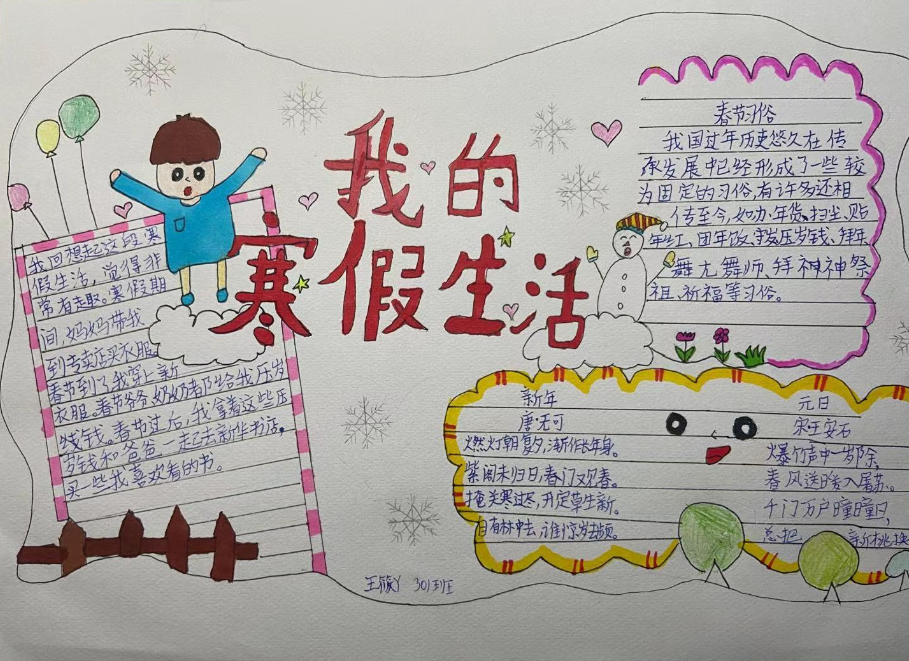 我的
寒假生活
我回想起这段寒
假生活,觉得非
常有趣。寒假期
间,妈妈带我
到专卖店买衣服
春节到了我穿上新
衣服。春节爷爷奶奶都给我压岁
钱。春节过后,我拿着这些压
岁钱和爸爸一起去新华书店,
买一些我喜欢看的书。
春节习俗
我国过年历史悠久在传
承发展中已经形成了一些较
为固定的习俗,有许多还相
传至今,如办年货、扫尘、贴
年红、团年饭、守岁压岁钱、拜年
舞龙舞师、拜神神祭
祖、祈福等习俗。
新年
唐:无可
燃灯朝复夕,渐作长年身。
紫阁未归日,青门又见春。
掩关寒过尽,开定草生新。
自有林中去,谁惊岁去频。
元日
宋王安石
爆竹声中一岁除,
春风送暖入屠苏。
千门万户曈曈日,
总把 新桃换
301班